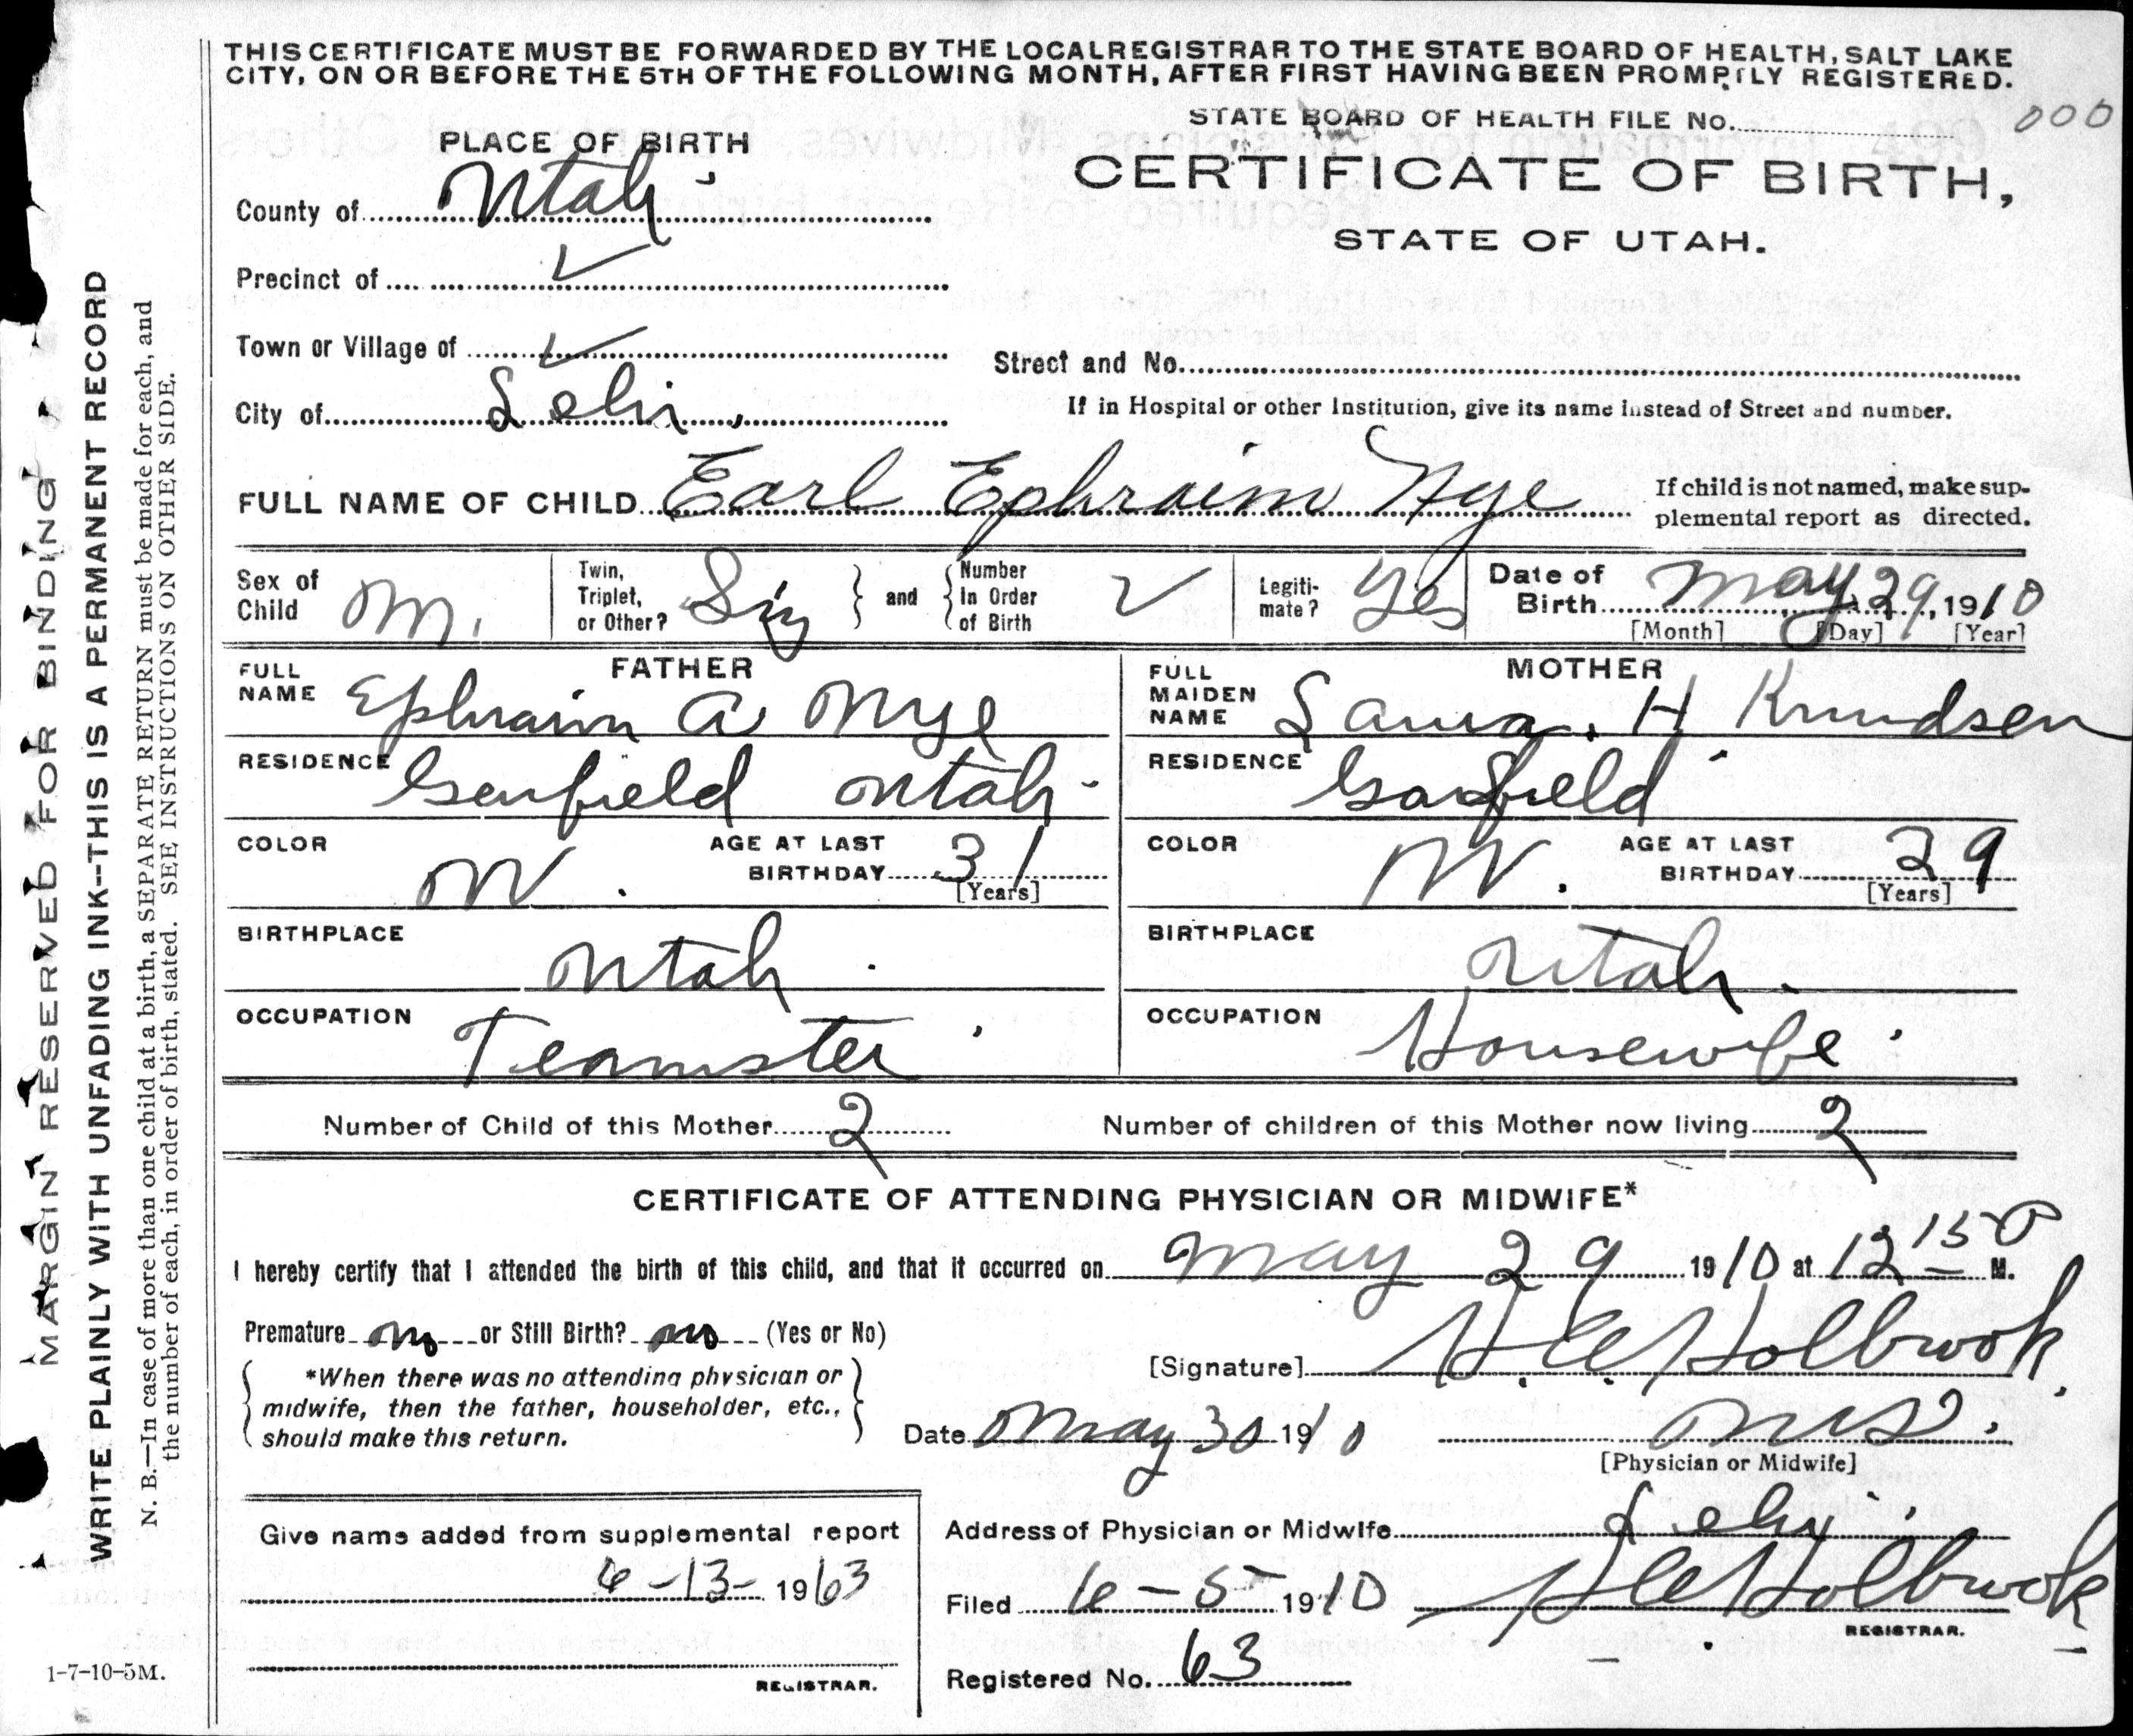 THIS CERTIFICATE MUST BE FORWARDED BY THE LOCAL REGISTRAR TO THE STATE BOARD OF HEALTH, SALT LAKE
CITY, ON OR BEFORE THE 5TH OF THE FOLLOWING MONTH, AFTER FIRST HAVING BEEN PROMPTLY REGISTERED.
STATE BOARD OF HEALTH FILE No. 000
PLACE OF BIRTH
CERTIFICATE OF BIRTH,
STATE OF UTAH.
County of Utah
Precinct of ✓
Town or Village of ✓
Street and No.
City of Lehi
If in Hospital or other Institution, give its name instead of Street and number.
FULL NAME OF CHILD Earl Ephraim Nye
If child is not named, make sup-
plemental report as directed.
Sex of Child M.
Twin, Triplet, or Other? Sing
and
Number In Order of Birth ✓
Legiti-mate? Yes
Date of Birth May 29, 1910
[Month] [Day] [Year]
FATHER
FULL NAME Ephraim A Nye
RESIDENCE Garfield Utah
COLOR W.
AGE AT LAST BIRTHDAY 31
[Years]
BIRTHPLACE Utah.
OCCUPATION Teamster
MOTHER
FULL MAIDEN NAME Laura. H Knudsen
RESIDENCE Garfield
COLOR W.
AGE AT LAST BIRTHDAY 29
[Years]
BIRTHPLACE Utah.
OCCUPATION Housewife
Number of Child of this Mother 2
Number of children of this Mother now living 2
CERTIFICATE OF ATTENDING PHYSICIAN OR MIDWIFE*
I hereby certify that I attended the birth of this child, and that it occurred on May 29 1910 at 12 15 P M.
Premature no or Still Birth? no (Yes or No)
*When there was no attending physician or
midwife, then the father, householder, etc.,
should make this return.
[Signature] H. E. Holbrook,
Date May 30 1910
M.D.
[Physician or Midwife]
Give name added from supplemental report
6-13- 1963
REGISTRAR.
Address of Physician or Midwife Lehi.
Filed 6-5 1910 H E Holbrook
REGISTRAR.
Registered No. 63
1-7-10-5M.
MARGIN RESERVED FOR BINDING
WRITE PLAINLY WITH UNFADING INK--THIS IS A PERMANENT RECORD
N. B.—In case of more than one child at a birth, a SEPARATE RETURN must be made for each, and
the number of each, in order of birth, stated. SEE INSTRUCTIONS ON OTHER SIDE.